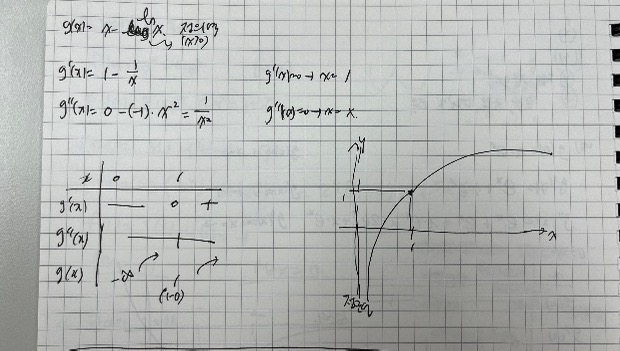 g(x) = x - ln x (x>0)
g'(x) = 1 - 1/x g'(x)=0 → x = 1
g''(x) = 0 - (-1) · x^2 = 1/x^2 g''(x)=0 → x = x
x 0 1
g'(x) — 0 +
g''(x)
g(x) -∞ 1
(1-0)
y
1
x
1